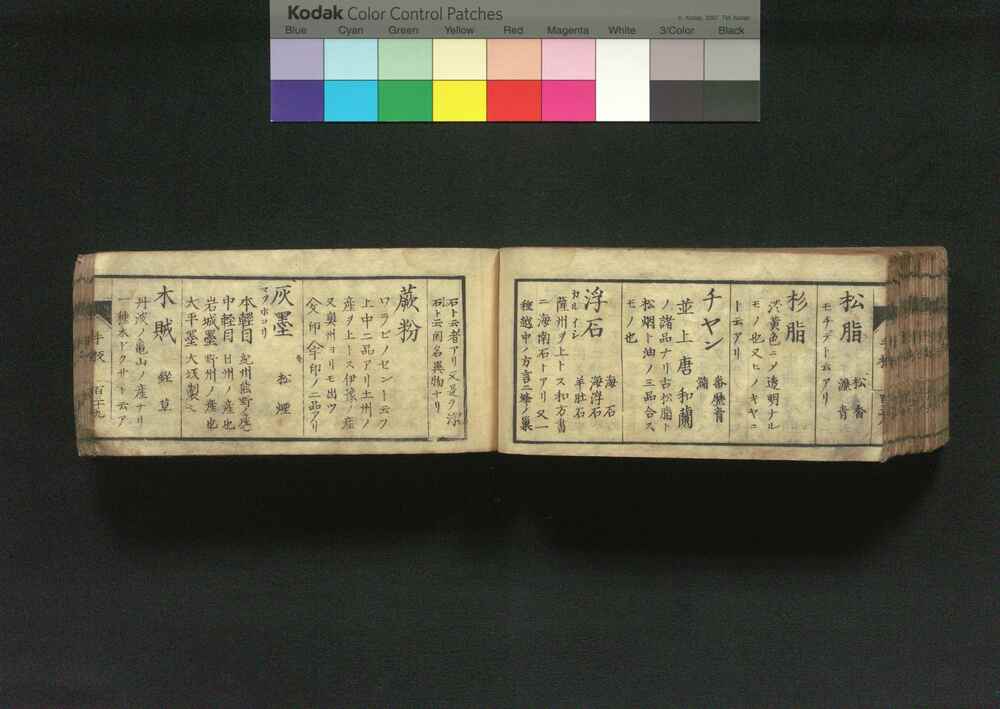 Kodak Color Control Patches
Blue Cyan Green Yellow Red Magenta White 3/Color Black
松脂 松香 瀝青
モチヂテト云アリ
杉脂
淡黄色ニ〆透明ナル
モノ也又ヒノキヤニ
ト云アリ
チヤン
並上唐和蘭
ノ諸品ナリ古松脂ト
松烟ト油ノ三品合ス
モノ也
浮石 海石 海浮石 羊肚石
カルイシ
薩州ヲ上トス和方書
ニ海南石トアリ又一
種越中ノ方言ニ蜂ノ巣
石ト云者アリ又
石ト云同名異物ナリ
蕨粉
ワラビノセント云フ
上中二品アリ土州ノ
産ヲ上トス伊豫ノ産
又奥州ヨリモ出ツ
印 印ノ二品アリ
灰墨 松煙
マツホコリ
本軽目 紀州熊野ノ産
中軽目 日州ノ産也
岩城墨 ノ産也
大平墨 大坂製
木賊 経草
丹波ノ亀山ノ産ナリ
一種木トクサト云ア